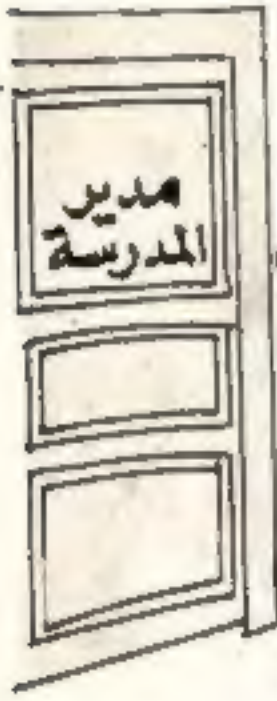 مدير
المدرسة